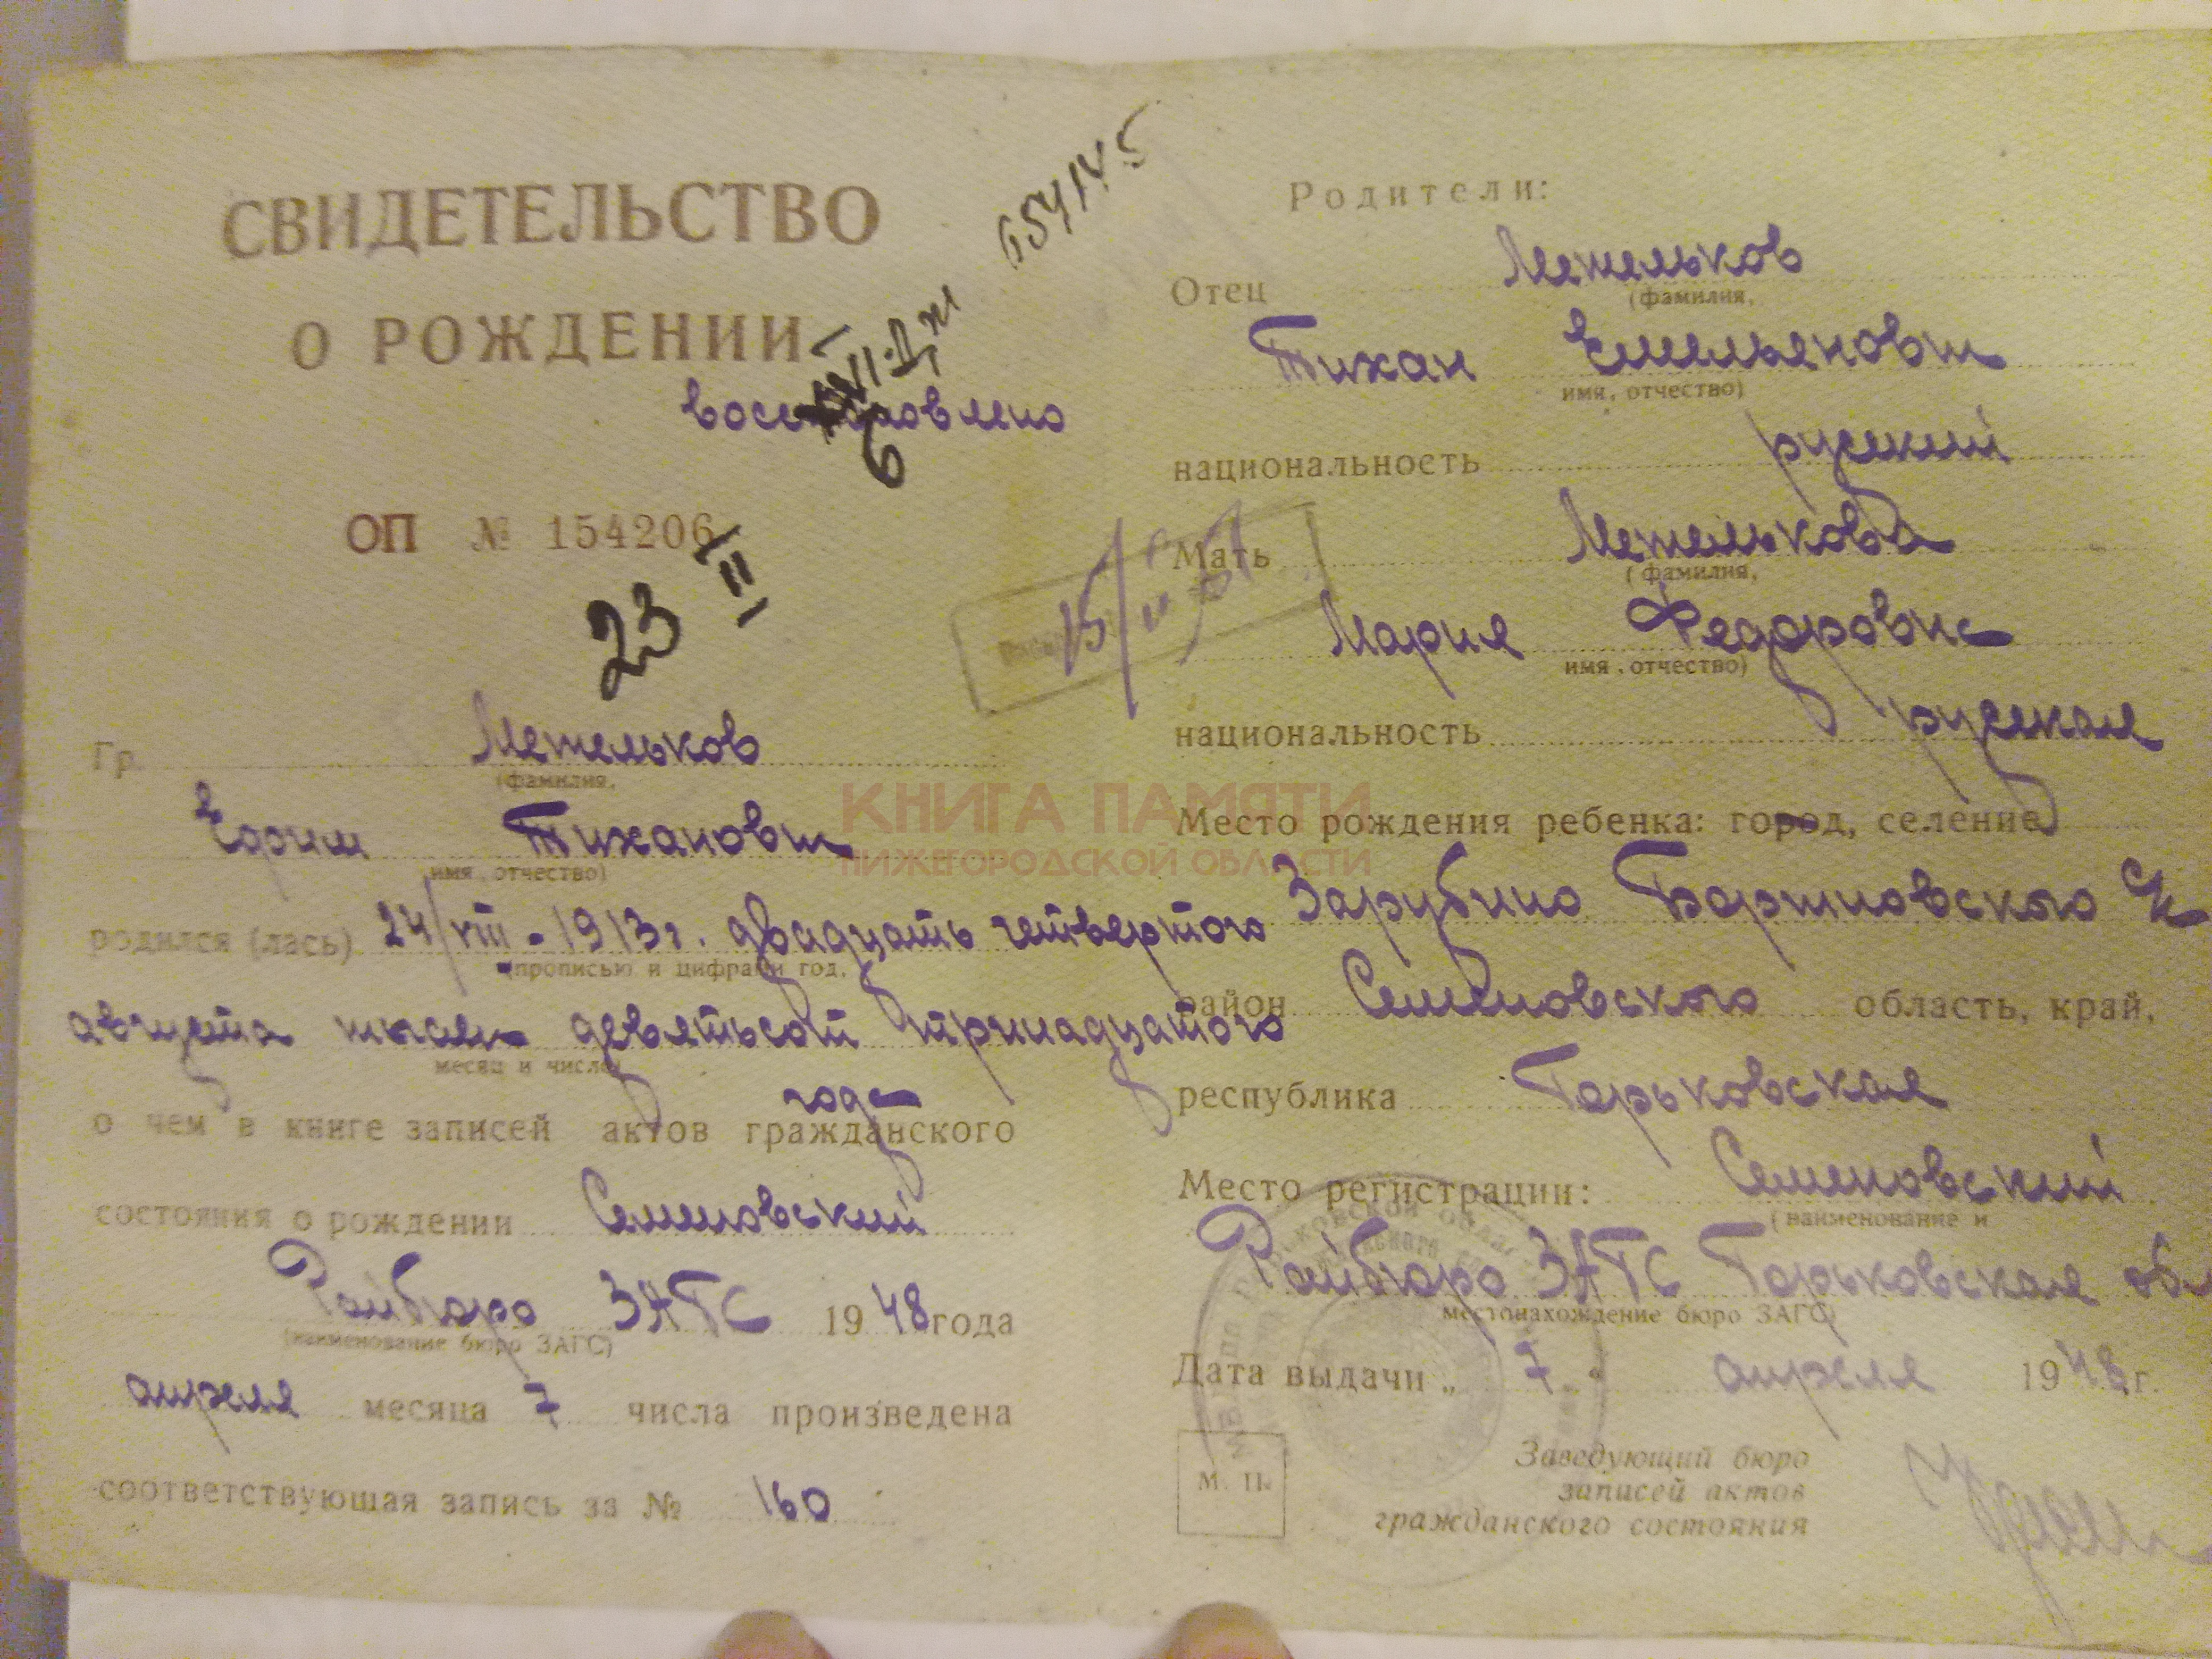 СВИДЕТЕЛЬСТВО
О РОЖДЕНИИ
восстановлено
ОП № 154206
23 II
Гр. Метельков
(фамилия,
Ефим Тиханович
имя, отчество)
родился (лась) 24/VIII-1913г. двадцать четвертого
(прописью и цифрами год,
августа тысяч девятьсот тринадцатого
месяц и число)
года
о чем в книге записей актов гражданского
состояния о рождении Семеновский
Райбюро ЗАГС 1948 года
(наименование бюро ЗАГС)
апреля месяца 7 числа произведена
соответствующая запись за № 160
Родители:
Отец Метельков
(фамилия,
Тихан Емельянович
имя, отчество)
национальность русский
Мать Метелькова
(фамилия,
Мария Федоровна
имя, отчество)
национальность русская
Место рождения ребенка: город, селение
Зарубино
район Семеновского область, край,
республика Горьковская
Место регистрации: Семеновский
(наименование и
Райбюро ЗАГС Горьковская обл
местонахождение бюро ЗАГС)
Дата выдачи „ 7 " апреля 1948 г.
М. П.
Заведующий бюро
записей актов
гражданского состояния
КНИГА ПАМЯТИ
НИЖЕГОРОДСКОЙ ОБЛАСТИ